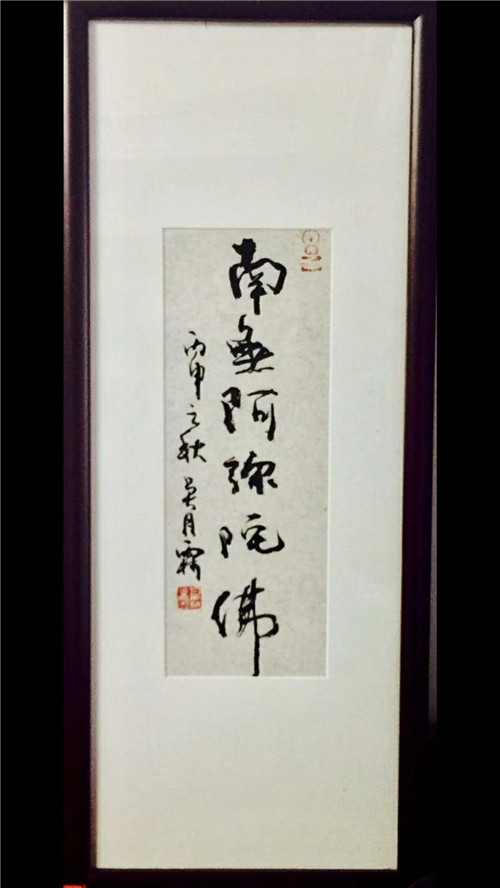 南無阿彌陀佛
丙申之秋 吴月霖